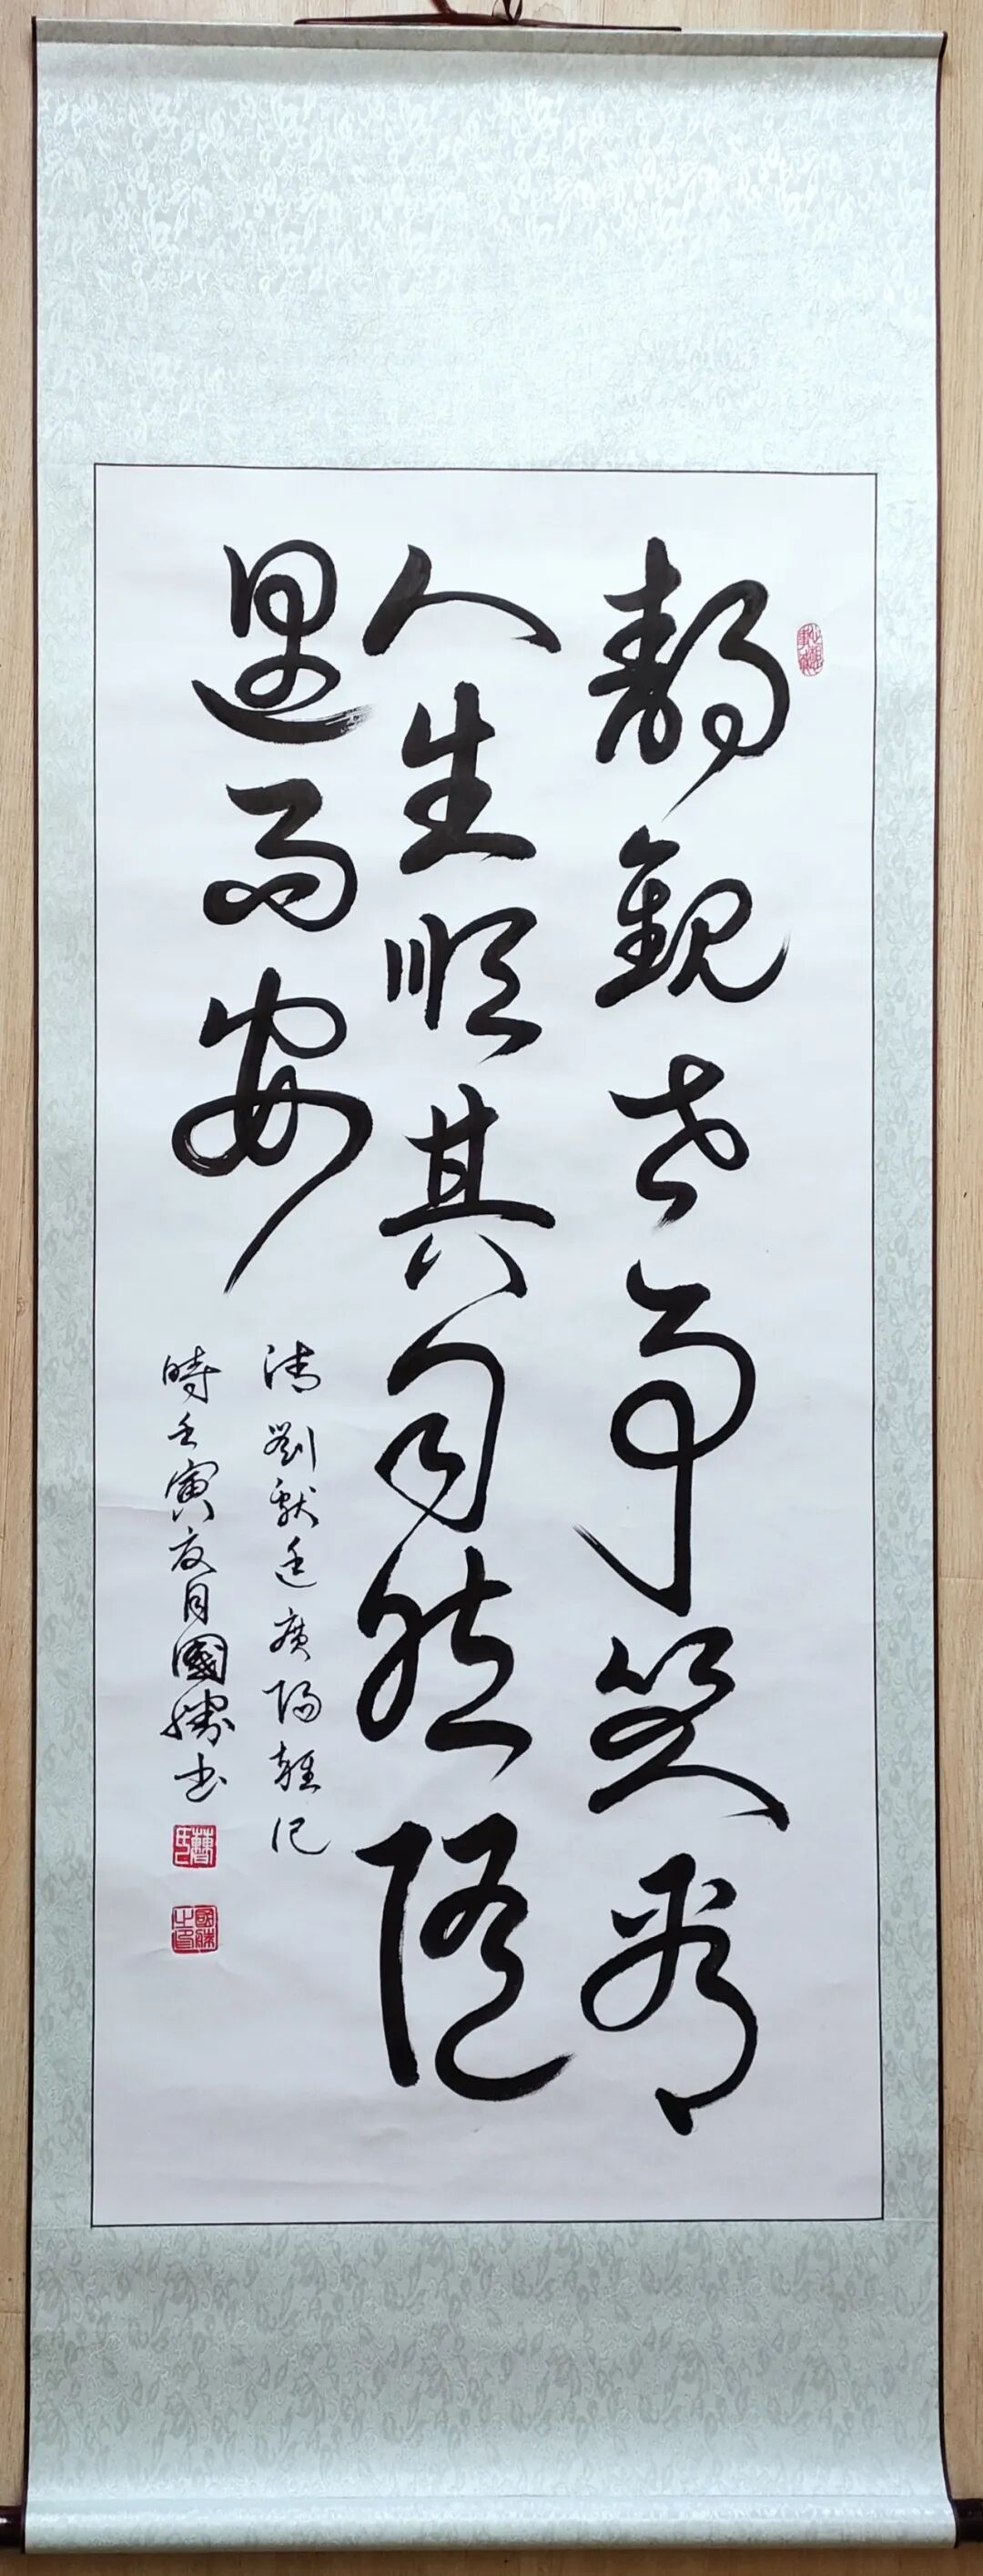 靜觀世事笑看
人生順其自然隨
遇而安
清劉獻廷廣陽雜記
時壬寅夏月國勝書
國勝之印